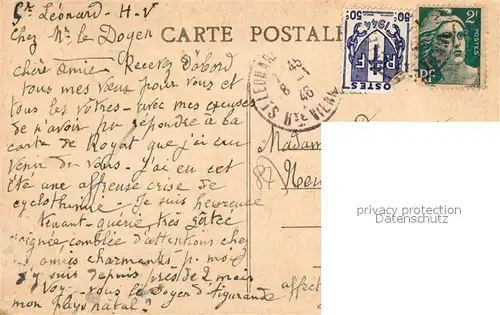 St Léonard - H-V
Chez Mr le Doyen
CARTE POSTALE
chère amie Recevez d'abord
tous mes vœux pour vous et
tous les vôtres - avec mes excuses
de n'avoir pu répondre à la
carte de Royat que j'ai eu
venir de vous - j'ai eu cet
été une affreuse crise de
cyclothymie - Je suis heureuse
gâtée
soignée, comblée d'attentions chez
amis charmants p. moi
j'y suis depuis près de 2 mois
Voy vous le doyen d'Eguzande
mon pays natal?
50c 1944 50c
RF
POSTES
2F
RF
ST LEONARD
HTE VIENNE
45
8-1
46
Madame
affect
privacy protection
Datenschutz